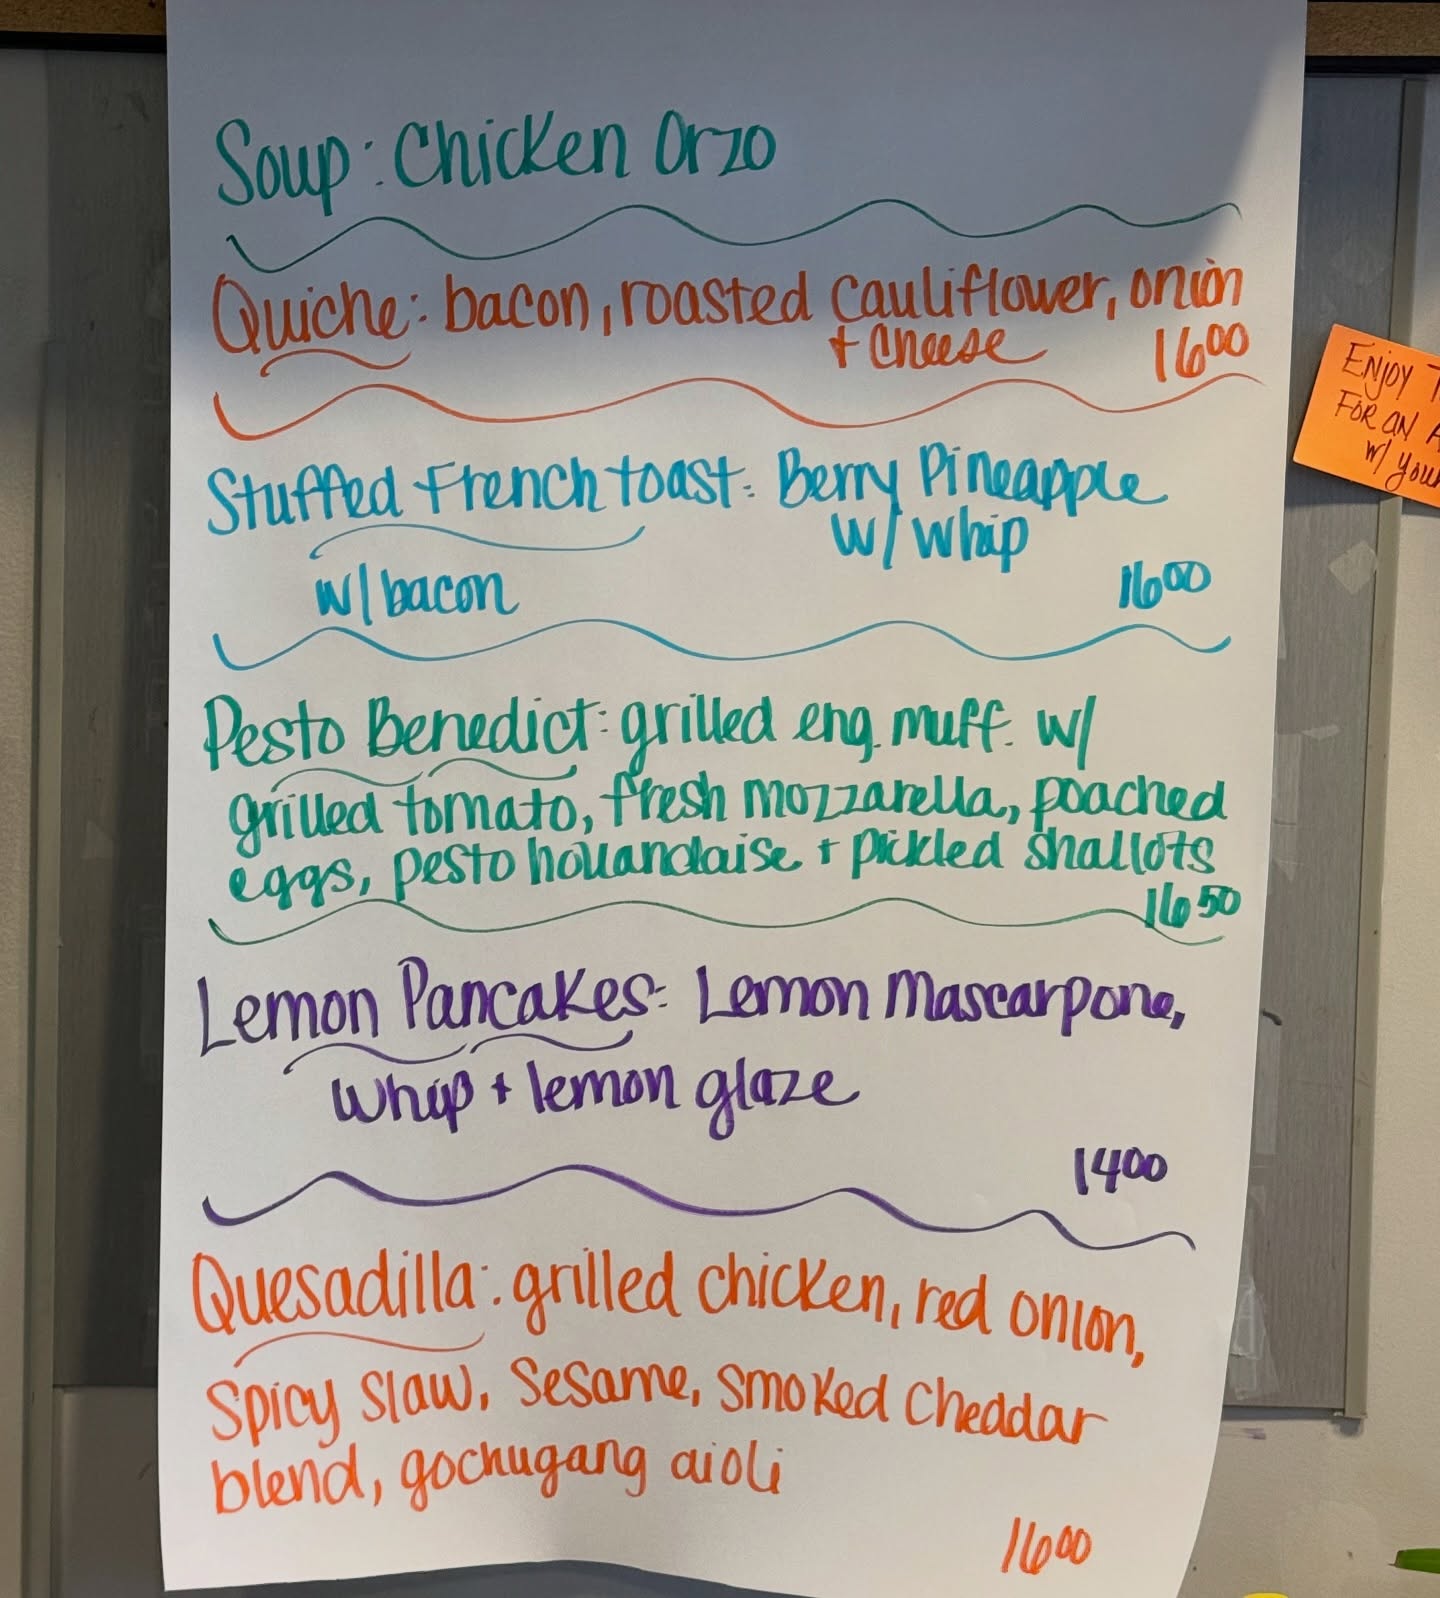 Soup: Chicken Orzo
Quiche: bacon, roasted cauliflower, onion
+ cheese 16⁰⁰
Stuffed French toast: Berry Pineapple
w/ whip
w/ bacon 16⁰⁰
Pesto Benedict: grilled eng. muff. w/
grilled tomato, fresh mozzarella, poached
eggs, pesto hollandaise + pickled shallots
16⁵⁰
Lemon Pancakes: Lemon Mascarpone,
whip + lemon glaze
14⁰⁰
Quesadilla: grilled chicken, red onion,
spicy slaw, sesame, smoked cheddar
blend, gochugang aioli
16⁰⁰
ENJOY
FOR AN
w/